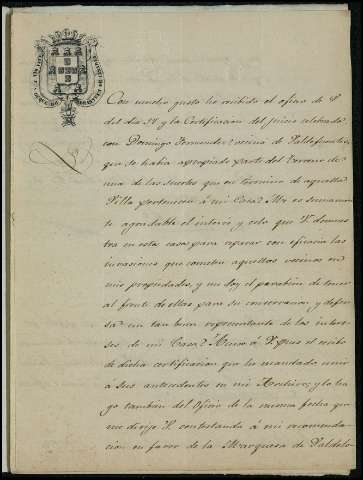 Con mucho gusto he recibido el oficio de V.
del dia 30 y la Certificacion del juicio celebrado
con Domingo Fernandez vecino de Valdefuentes,
que se habia apropiado parte del terreno de
una de las suertes que en termino de aquella
Villa pertenecen á mi Casa. Me es sumamen-
te agradable el interés y celo que V. demues-
tra en esta casa para reparar con eficacia las
invasiones que cometen aquellos vecinos en
mis propiedades, y me doy el parabien de tener
al frente de ellas para su conservacion y defen-
sa un tan buen representante de los intere-
ses de mi Casa. Acuso á V. pues el recibo
de dicha certificacion que he mandado unir
á sus antecedentes en mi Archivo; y lo ha-
go tambien del Oficio de la misma fecha que
me dirije V. contestando á mi recomenda-
cion en favor de la Marquesa de